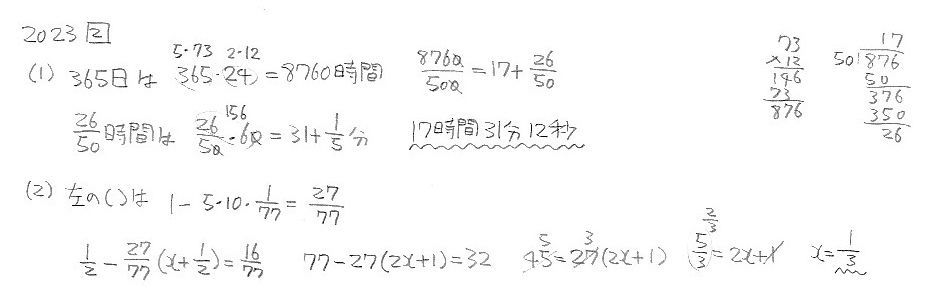 2023 2
(1) 365日は 365・24 = 8760時間 8760/500 = 17 + 26/50
5・73 2・12
26/50時間は 26/50・60 = 31 + 1/5分 17時間31分12秒
156
73 ×12 146 73 876
17 50)876 50 376 350 26
(2) 左の( )は 1 - 5・10・1/77 = 27/77
1/2 - 27/77(x + 1/2) = 16/77 77 - 27(2x+1) = 32 45 = 27(2x+1) 5/3 = 2x+1 x = 1/3
5 3 2/3